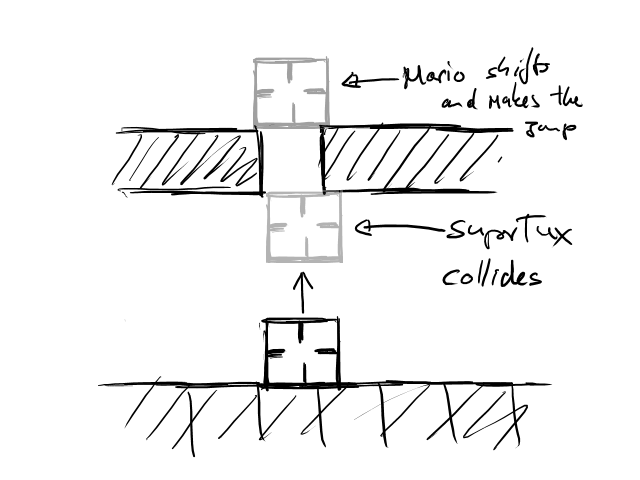 Mario shifts
and makes the
jump
SuperTux
collides